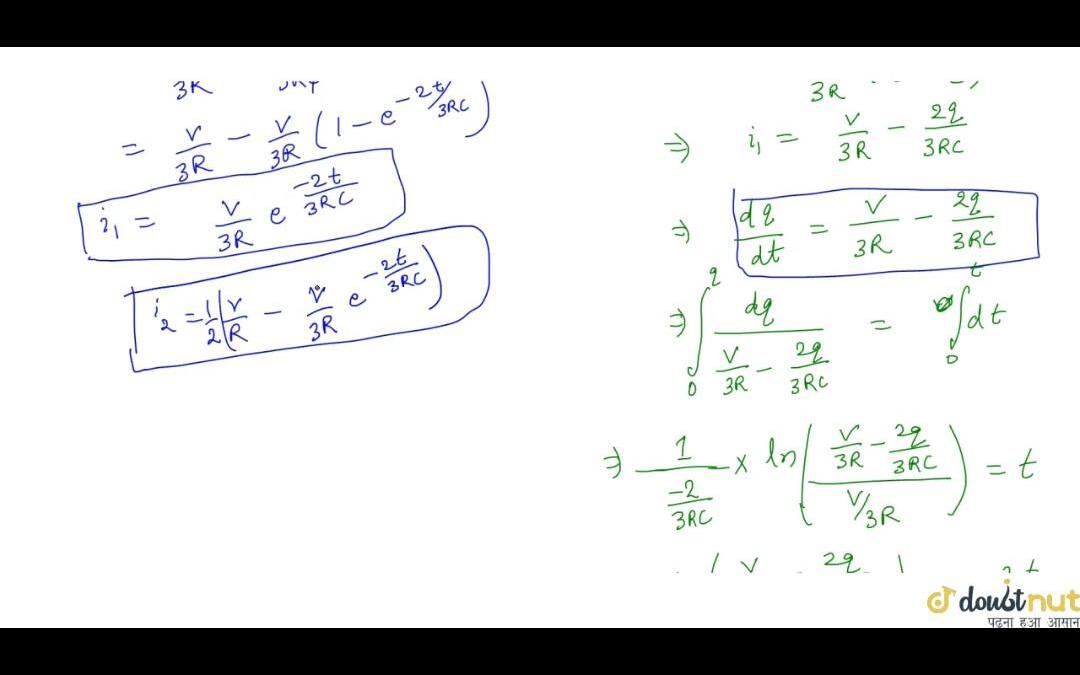 3R
= V/3R − V/3R (1 − e^(−2t/3RC))
i₁ = V/3R e^(−2t/3RC)
i₂ = 1/2 (V/R − V/3R e^(−2t/3RC))
3R
⇒ i₁ = V/3R − 2q/3RC
⇒ dq/dt = V/3R − 2q/3RC
⇒ ∫₀^q dq/(V/3R − 2q/3RC) = ∫₀^t dt
⇒ 1/(−2/3RC) × ln((V/3R − 2q/3RC)/(V/3R)) = t
V 2q
doubtnut
पढ़ना हुआ आसान